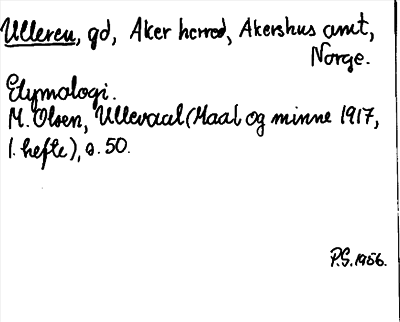 Ulleren, gd, Aker herred, Akershus amt,
Norge.
Etymologi.
M. Olsen, Ullevaal (Maal og minne 1917,
1. hefte), s. 50.
P.S. 1956.